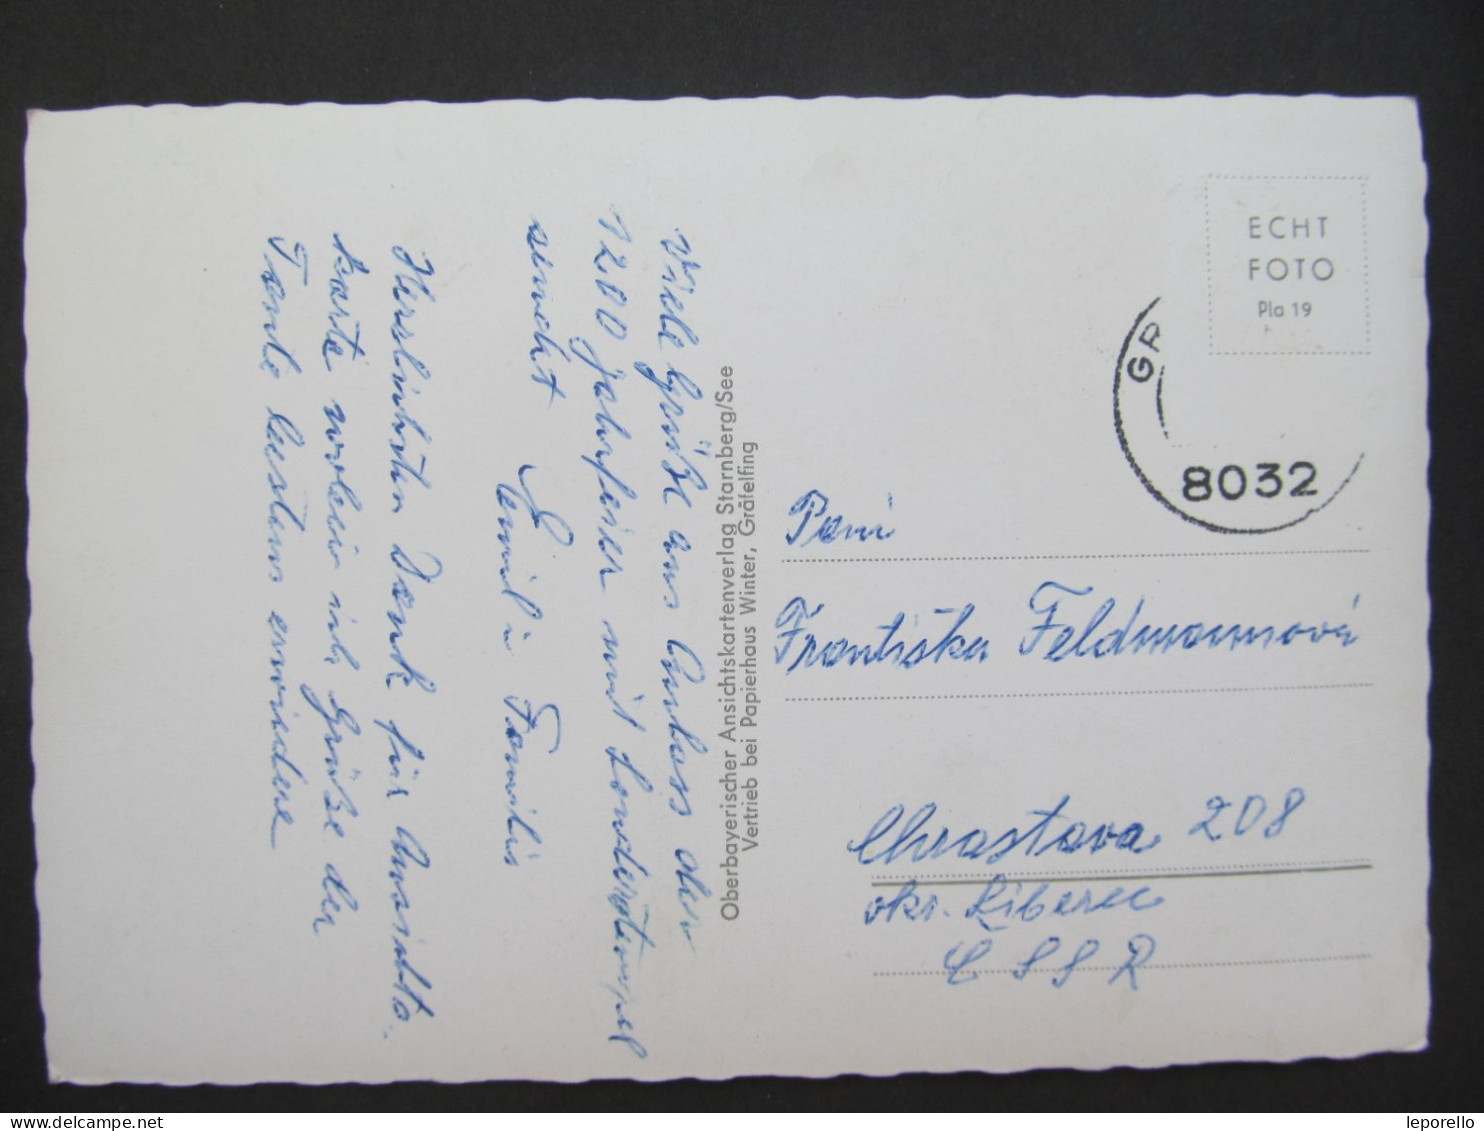 Viele Grüße aus Anlass der
1200 jahrfeier mit Sonderstempel
sendet Emil u. Familie
Herzlichsten Dank für Ansichts
karte wobei ich Grüße der
Tante bestens erwidere
Oberbayerischer Ansichtskartenverlag Starnberg/See
Vertrieb bei Papierhaus Winter, Gräfelfing
ECHT
FOTO
Pla 19
GR
8032
Paní
Františka Feldmannová
Chrastava 208
okr. Liberec
ČSSR
leporello